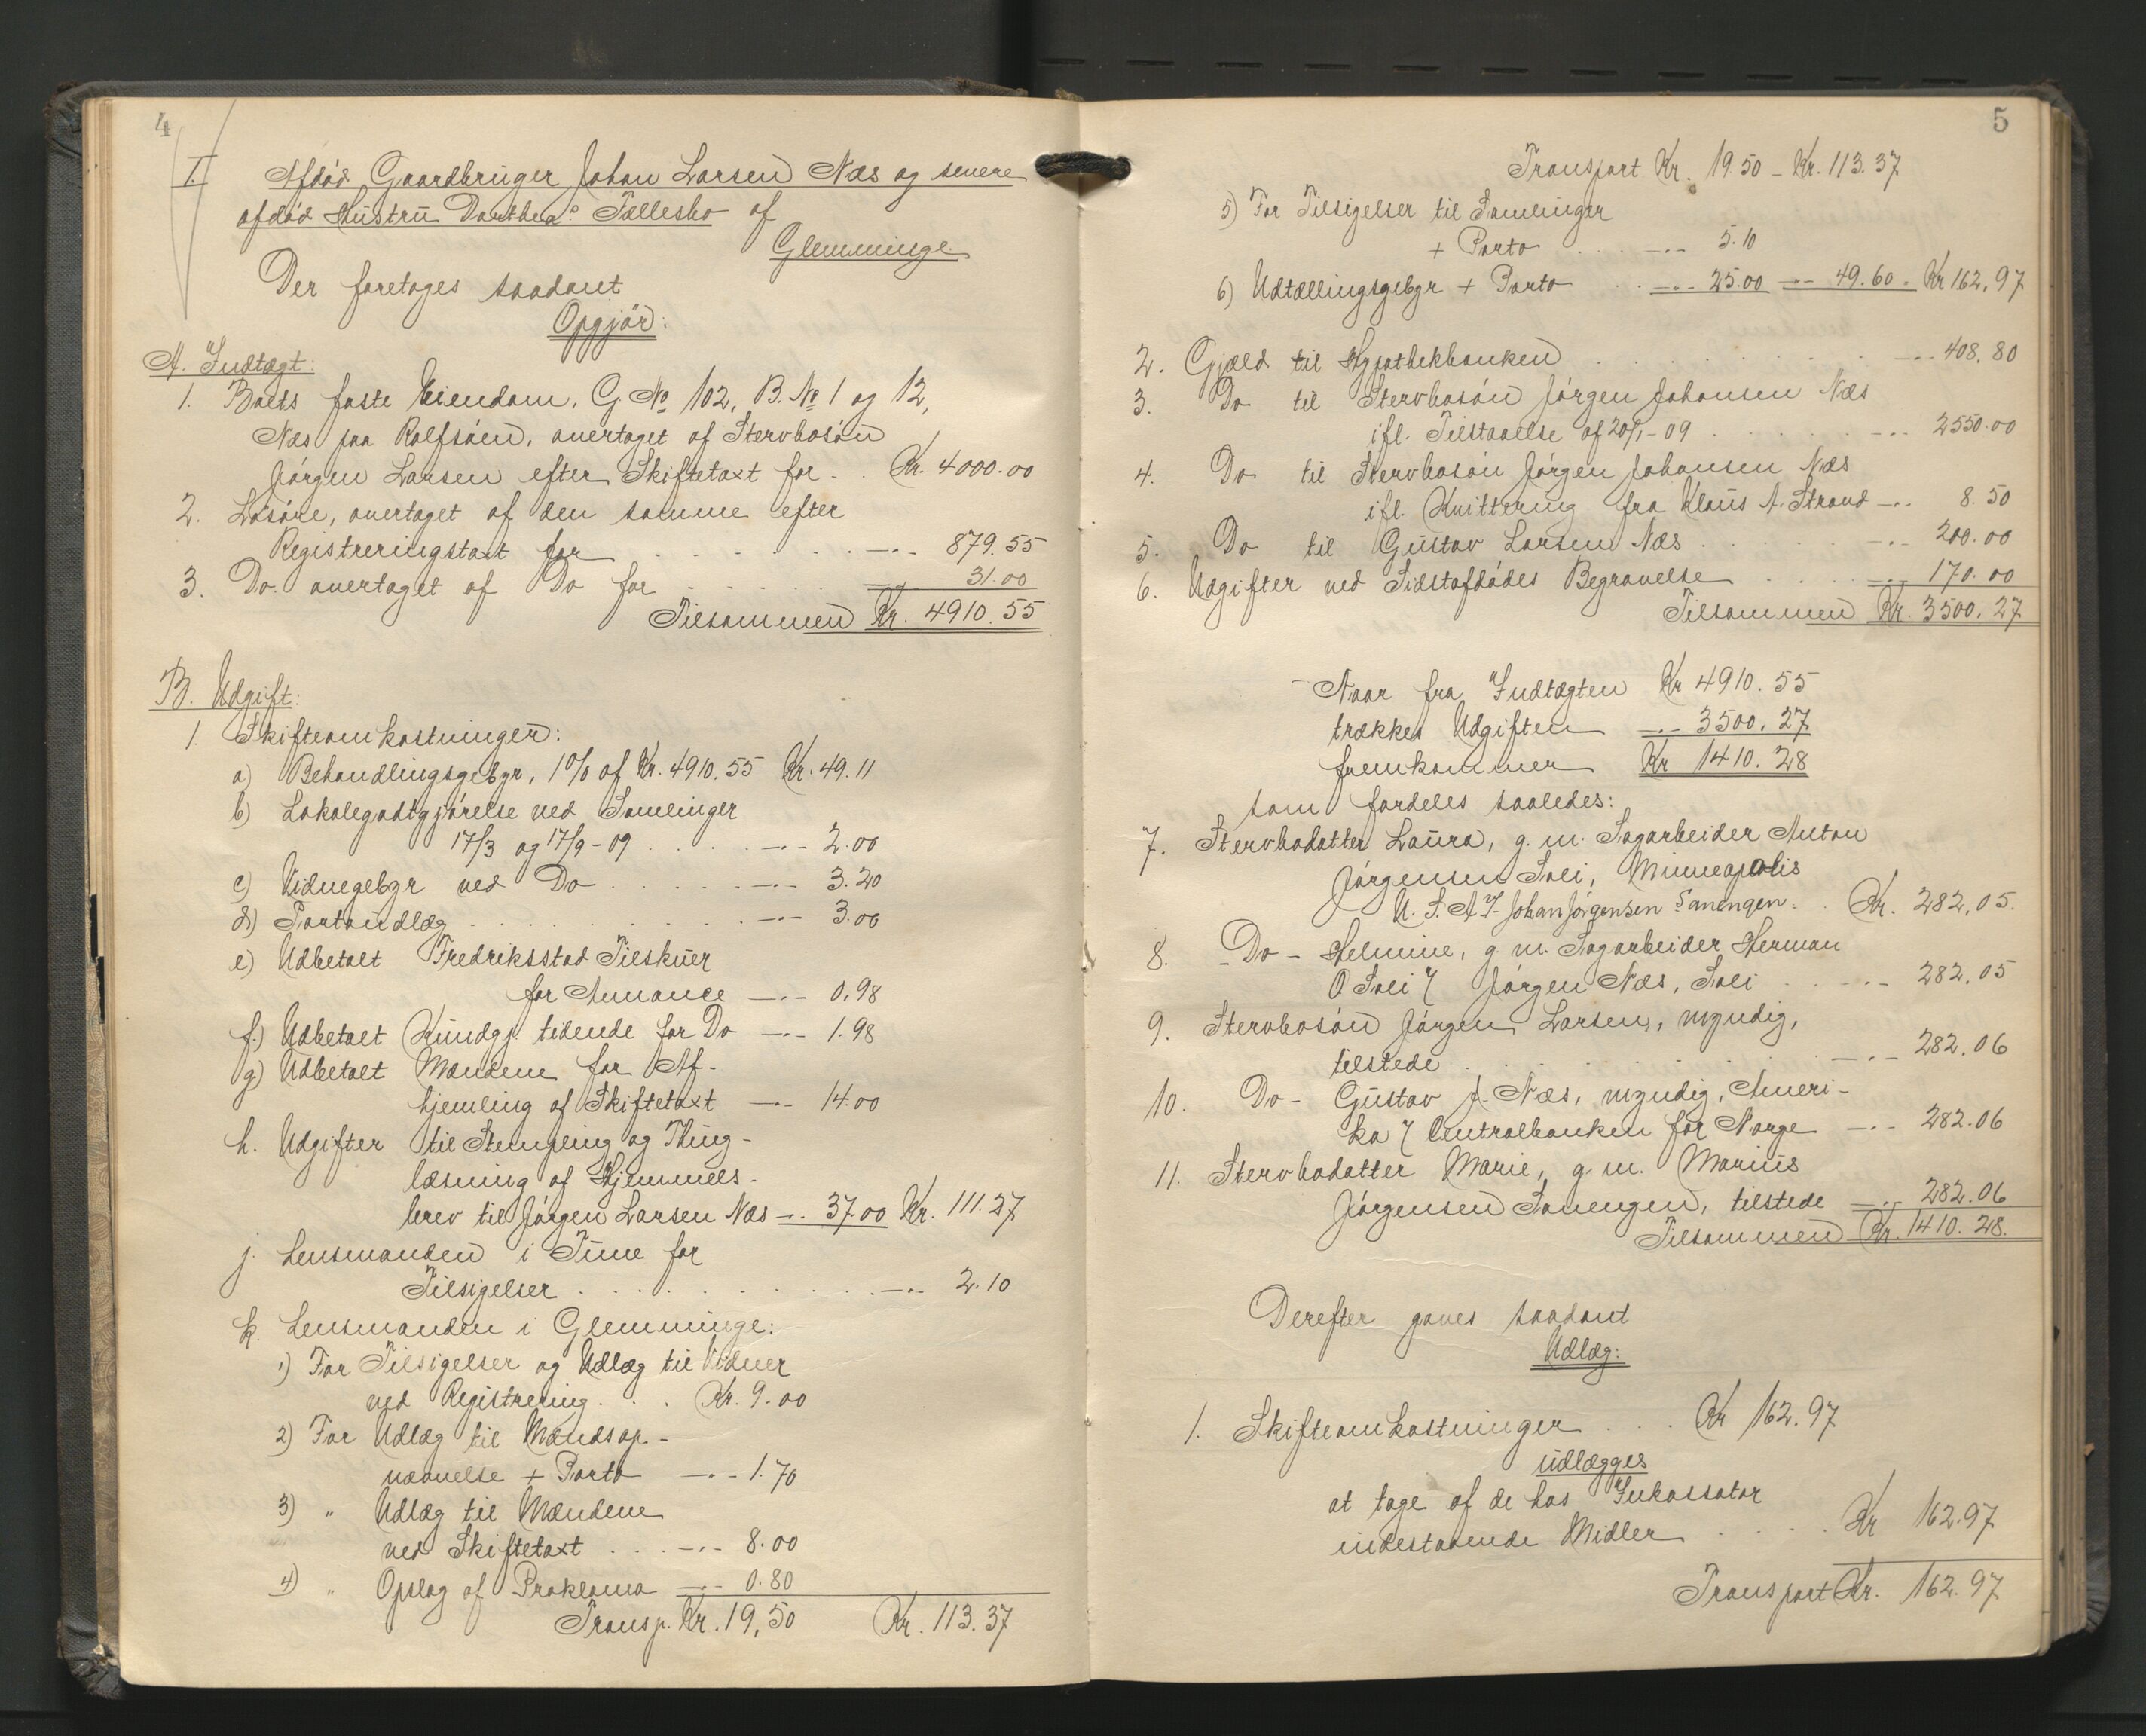 4
I. Afdød Gaardbruger Johan Larsen Næs og senere
afdød Hustru Dorthea's Fællesbo af
Glemminge
Der foretages saadant
Opgjør:
A. Indtægt:
1. Boets faste Eiendom, G No 102, B. No 1 og 12,
Næs paa Rolfsøen, overtaget af Stervbosøn
Jørgen Larsen efter Skiftetaxt for . . Kr. 4000.00
2. Løsøre, overtaget af den samme efter
Registreringstaxt for . . . . . . —..- 879.55
3. Do. overtaget af Do for . . . . 31.00
Tilsammen Kr. 4910.55
B. Udgift:
1. Skifteomkostninger:
a) Behandlingsgebyr, 1% af Kr. 4910.55 Kr. 49.11
b) Lokalegodtgjørelse ved Samlinger
17/3 og 17/9-09 . . . . —..- 2.00
c) Vidnegebyr ved Do . . . . . —..- 3.20
d) Portoudlæg . . . . . . . . —..- 3.00
e) Udbetalt Fredriksstad Tilskuer
for Annonce —..- 0.98
f.) Udbetalt Kundgj. tidende for Do —..- 1.98
g) Udbetalt Mændene for Af-
hjemling af Skiftetaxt —..- 14.00
h. Udgifter til Stempling og Thing-
læsning af Hjemmels-
brev til Jørgen Larsen Næs —..- 37.00 Kr. 111.27
j. Lensmanden i Tune for
Tilsigelser . . . . . . . . . —..- 2.10
k. Lensmanden i Glemminge:
1) For Tilsigelser og Udlæg til Vidner
ved Registrering . . . Kr. 9.00
2) For Udlæg til Mændsop-
nævnelse + Porto —..- 1.70
3) " Udlæg til Mændene
ved Skiftetaxt . . . —..- 8.00
4) " Opslag af Proklama —..- 0.80
Transp. Kr. 19,50 Kr. 113.37
5
Transport Kr. 19.50 - Kr. 113.37
5) For Tilsigelser til Samlinger
+ Porto . . . —..- 5.10
6) Udtællingsgebyr + Porto . . —..- 25.00 —..- 49.60. Kr 162,97
2. Gjæld til Hypothekbanken . . . . . . . —..- 408.80
3. Do til Stervbosøn Jørgen Johansen Næs
ifl. Tilstaaelse af 20/1-09 . . . . . . —..- 2550.00
4. Do til Stervbosøn Jørgen Johansen Næs
ifl. Kvittering fra Klaus A. Strand —..- 8.50
5. Do til Gustav Larsen Næs . . . . . —..- 200.00
6. Udgifter ved Sidstafdødes Begravelse . . . —..- 170.00
Tilsammen Kr. 3500.27
Naar fra Indtægten Kr 4910.55
trækkes Udgiften —..- 3500.27
fremkommer Kr 1410.28
som fordeles saaledes:
7. Stervbodatter Laura, g. m. Sagarbeider Anton
Jørgensen Soli, Minneapolis
U. S. A. Johan Jørgensen Sanengen . . Kr. 282,05.
8. - Do - Helmine, g. m. Sagarbeider Herman
O Soli Jørgen Næs, Soli . . . —..- 282.05
9. Stervbosøn Jørgen Larsen, myndig,
tilstede . . . . . . . . . —..- 282.06
10. Do - Gustav J. Næs, myndig, Ameri-
ka Centralbanken for Norge —..- 282.06
11. Stervbodatter Marie, g. m. Marius
Jørgensen Sanengen, tilstede —..- 282.06
Tilsammen Kr. 1410.28.
Derefter gaves saadant
Udlæg:
1. Skifteomkostninger . . . Kr 162.97
udlægges
at tage af de hos Inkassator
indestaaende Midler . . . . Kr 162.97
Transport Kr. 162.97